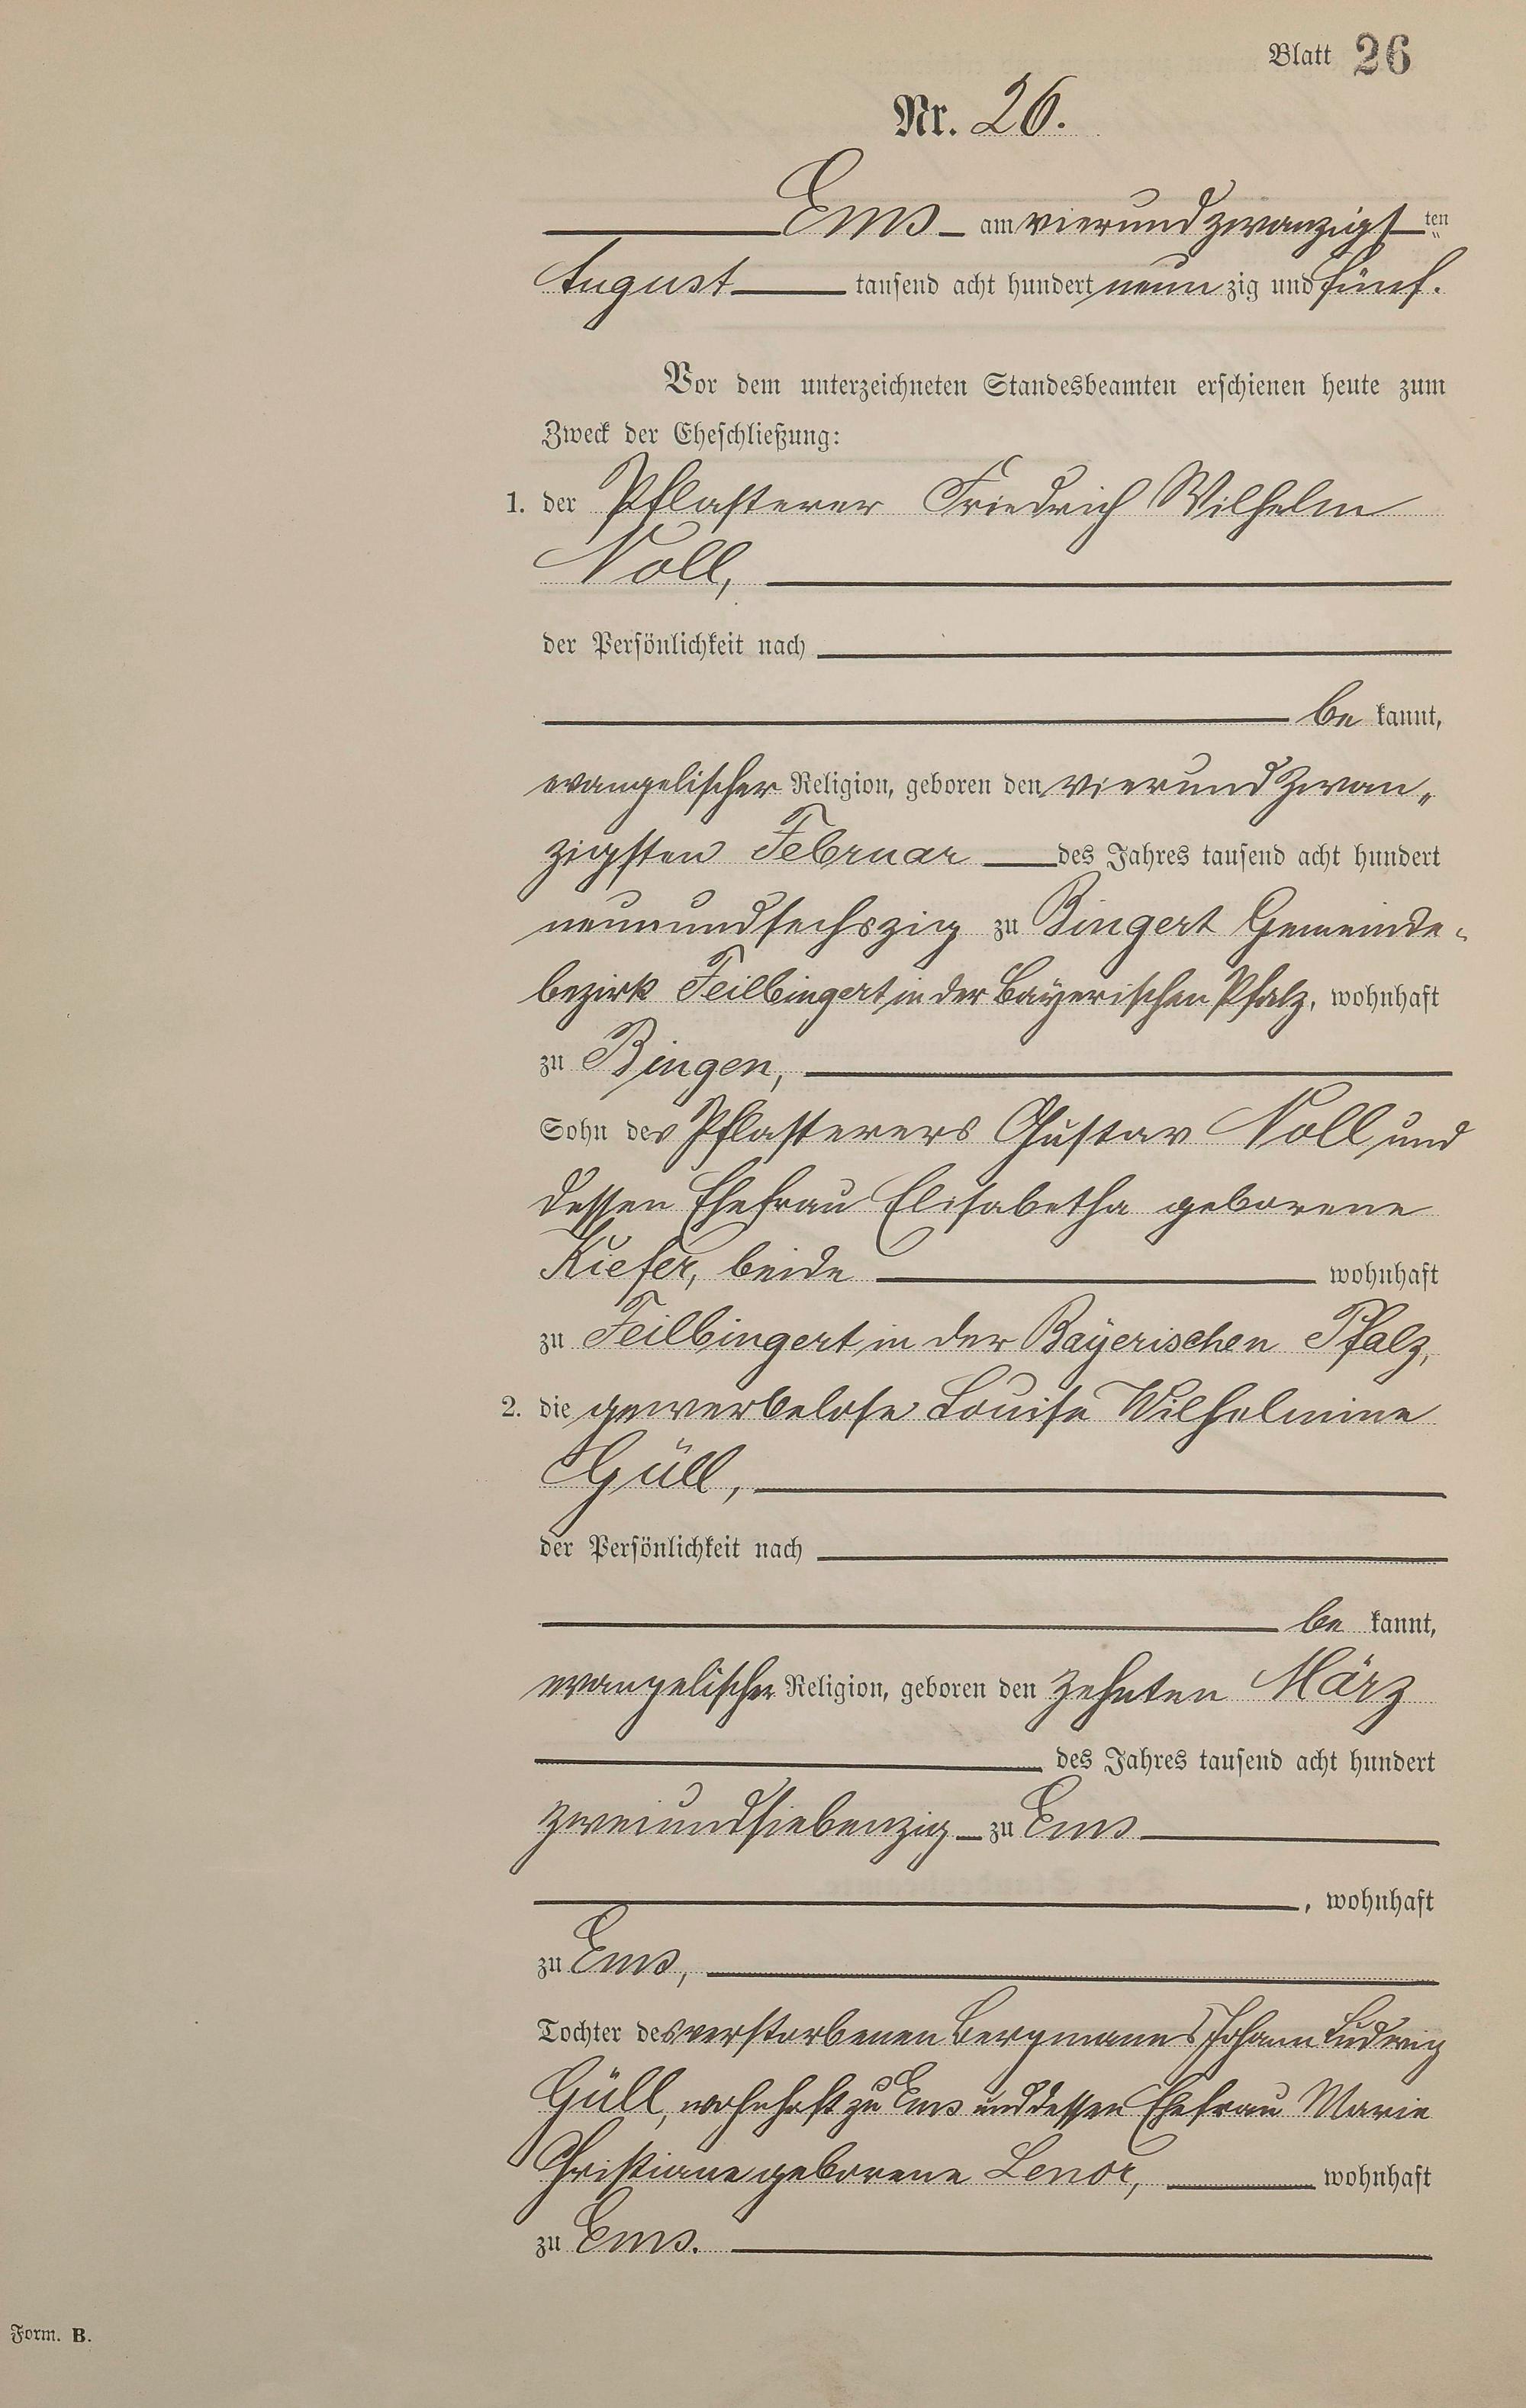 Blatt 26
Nr. 26.
Ems am vierundzwanzigsten
August tausend acht hundert neunzig und fünf.
Vor dem unterzeichneten Standesbeamten erschienen heute zum
Zweck der Eheschließung:
1. der Pflasterer Friedrich Wilhelm
Noll,
der Persönlichkeit nach
be kannt,
evangelischer Religion, geboren den vierundzwan„
zigsten Februar des Jahres tausend acht hundert
neunundsechszig zu Bingert Gemeinde-
bezirk Feilbingert in der Bayerischen Pfalz, wohnhaft
zu Bingen,
Sohn des Pflasterers Gustav Noll und
dessen Ehefrau Elisabetha geborene
Kiefer, beide wohnhaft
zu Feilbingert in der Bayerischen Pfalz,
2. die gewerbelose Louise Wilhelmine
Güll,
der Persönlichkeit nach
be kannt,
evangelischer Religion, geboren den zehnten März
des Jahres tausend acht hundert
zweiundsiebenzig zu Ems
, wohnhaft
zu Ems,
Tochter des verstorbenen Bergmannes Johann Ludwig
Güll, wohnhaft zu Ems und dessen Ehefrau Marie
Christiane geborene Lenor, wohnhaft
zu Ems.
Form. B.